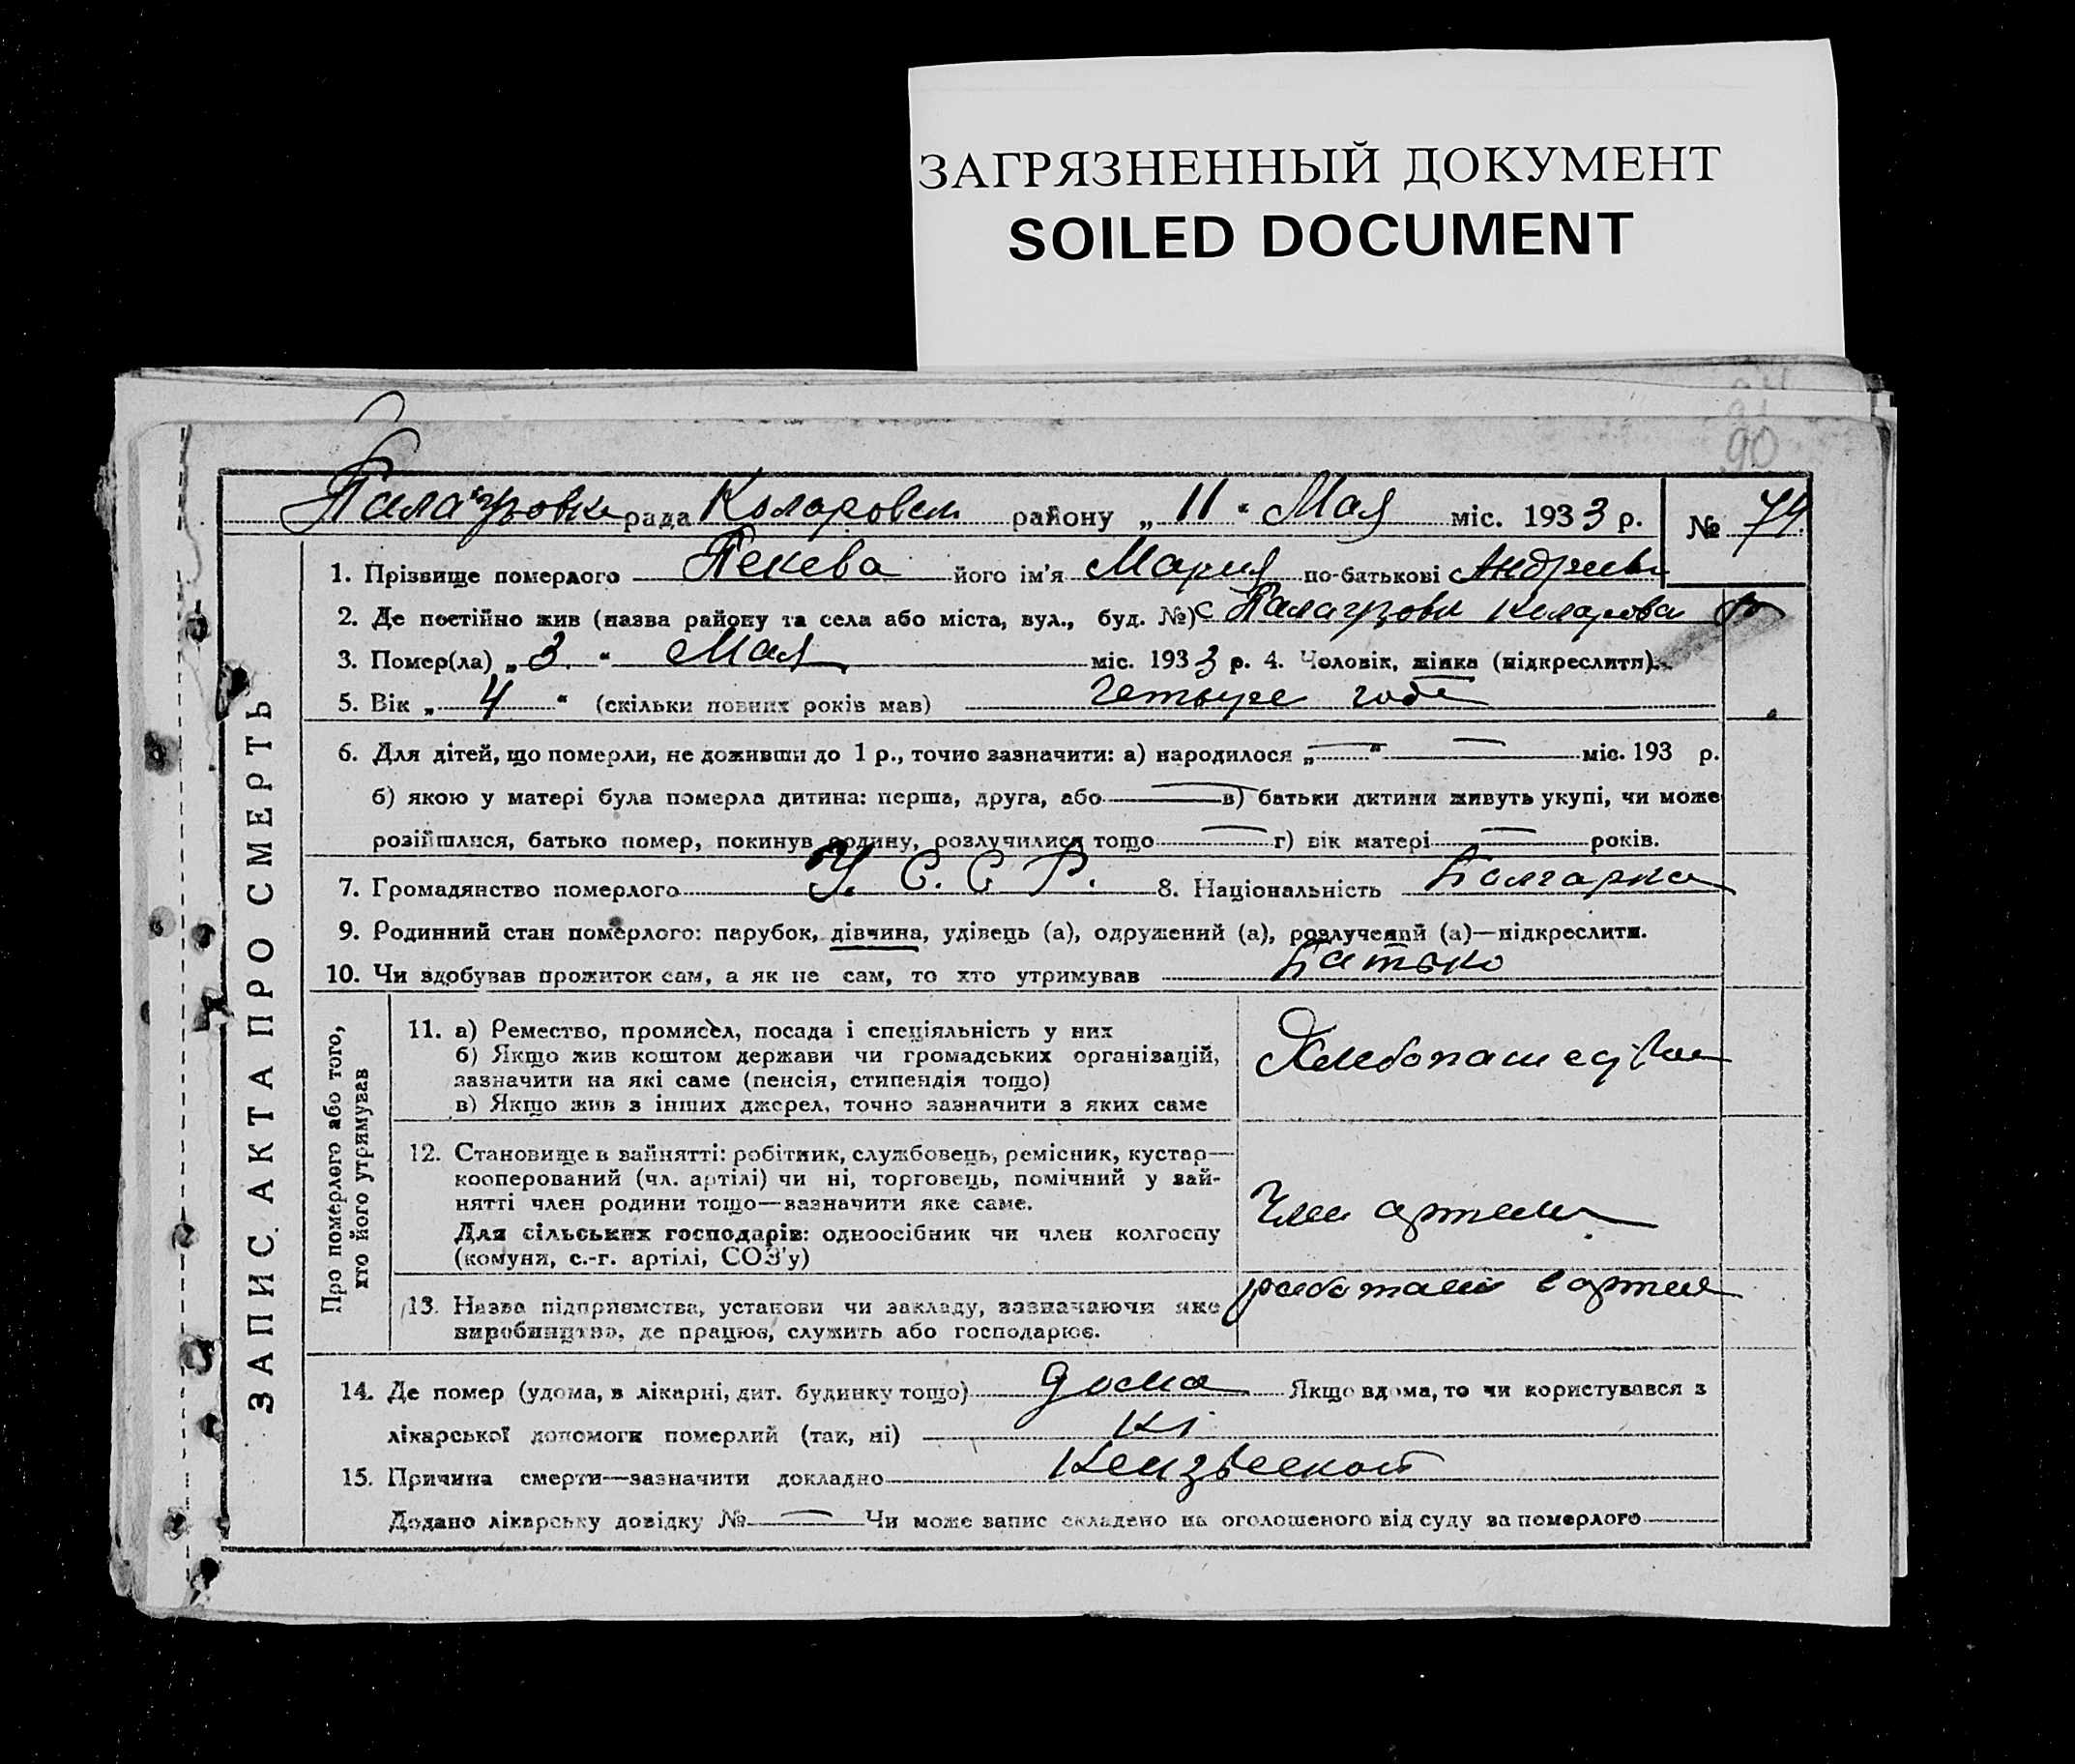 ЗАГРЯЗНЕННЫЙ ДОКУМЕНТ
SOILED DOCUMENT
90
Палаузовка рада Коларовск району „ 11 “ Мая міс. 1933 р. № 74.
ЗАПИС АКТА ПРО СМЕРТЬ
1. Прізвище померлого Пекева його ім'я Мария по-батькові Андреевн
2. Де постійно жив (назва району та села або міста, вул., буд. №) с Палаузовк Коларовск
3. Помер(ла) „ 3. “ Мая міс. 1933 р. 4. Чоловік, жінка (підкреслити).
5. Вік „ 4 “ (скільки повних років мав) Четыре года
6. Для дітей, що померли, не доживши до 1 р., точно зазначити: а) народилося „ — “ — міс. 193 р.
б) якою у матері була померла дитина: перша, друга, або — в) батьки дитини живуть укупі, чи може
розійшлися, батько помер, покинув родину, розлучилися тощо — г) вік матері — років.
7. Громадянство померлого У. С. С. Р. 8. Національність Болгарка
9. Родинний стан померлого: парубок, дівчина, удівець (а), одружений (а), розлучений (а)—підкреслити.
10. Чи здобував прожиток сам, а як не сам, то хто утримував Батько
Про померлого або того, хто його утримував
11. а) Ремество, промисел, посада і спеціяльність у них
б) Якщо жив коштом держави чи громадських організацій,
зазначити на які саме (пенсія, стипендія тощо)
в) Якщо жив з інших джерел, точно зазначити з яких саме
Хлебопашество
12. Становище в зайнятті: робітник, службовець, ремісник, кустар—
кооперований (чл. артілі) чи ні, торговець, помічний у зай-
нятті член родини тощо—зазначити яке саме.
Для сільських господарів: одноосібник чи член колгоспу
(комуни, с.-г. артілі, СОЗ'у)
Член артели
13. Назва підприємства, установи чи закладу, зазначаючи яке
виробництво, де працює, служить або господарює.
работает в артел
14. Де помер (удома, в лікарні, дит. будинку тощо) дома Якщо вдома, то чи користувався з
лікарської допомоги померлий (так, ні) Ні
15. Причина смерти—зазначити докладно
Додано лікарську довідку № — Чи може запис складено на оголошеного від суду за померлого